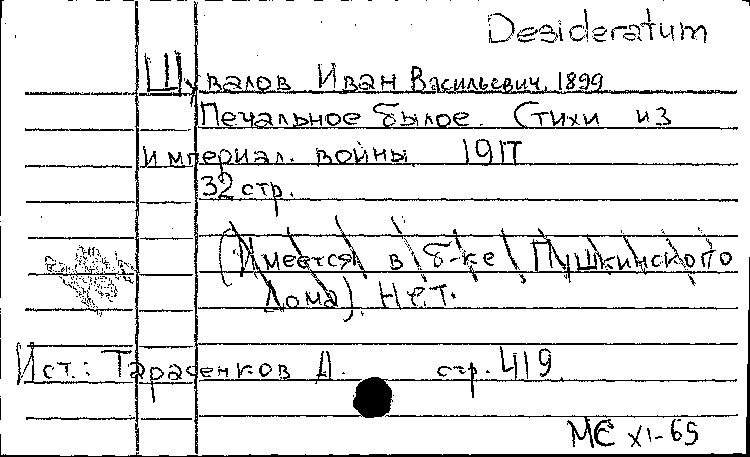 Desideratum
Шувалов Иван Васильевич, 1899
Печальное былое. Стихи из
империал. войны. 1917
32 стр.
(Имеется в б-ке Пушкинского
Дома). Нет.
Ист.: Тарасенков А. стр. 419
МС XI-65